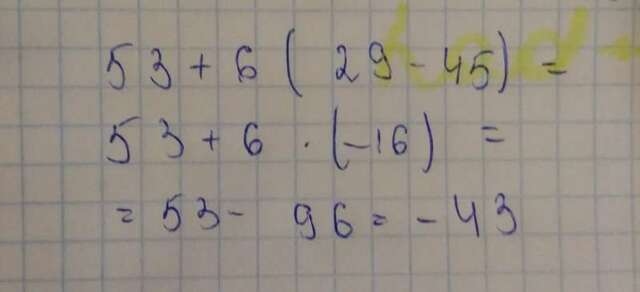 53 + 6 ( 29 - 45) =
53 + 6 · (-16) =
= 53 - 96 = - 43